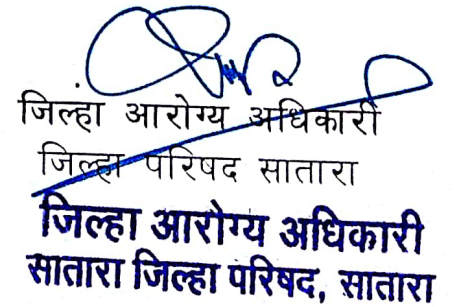 जिल्हा आरोग्य अधिकारी
जिल्हा परिषद सातारा
जिल्हा आरोग्य अधिकारी
सातारा जिल्हा परिषद, सातारा